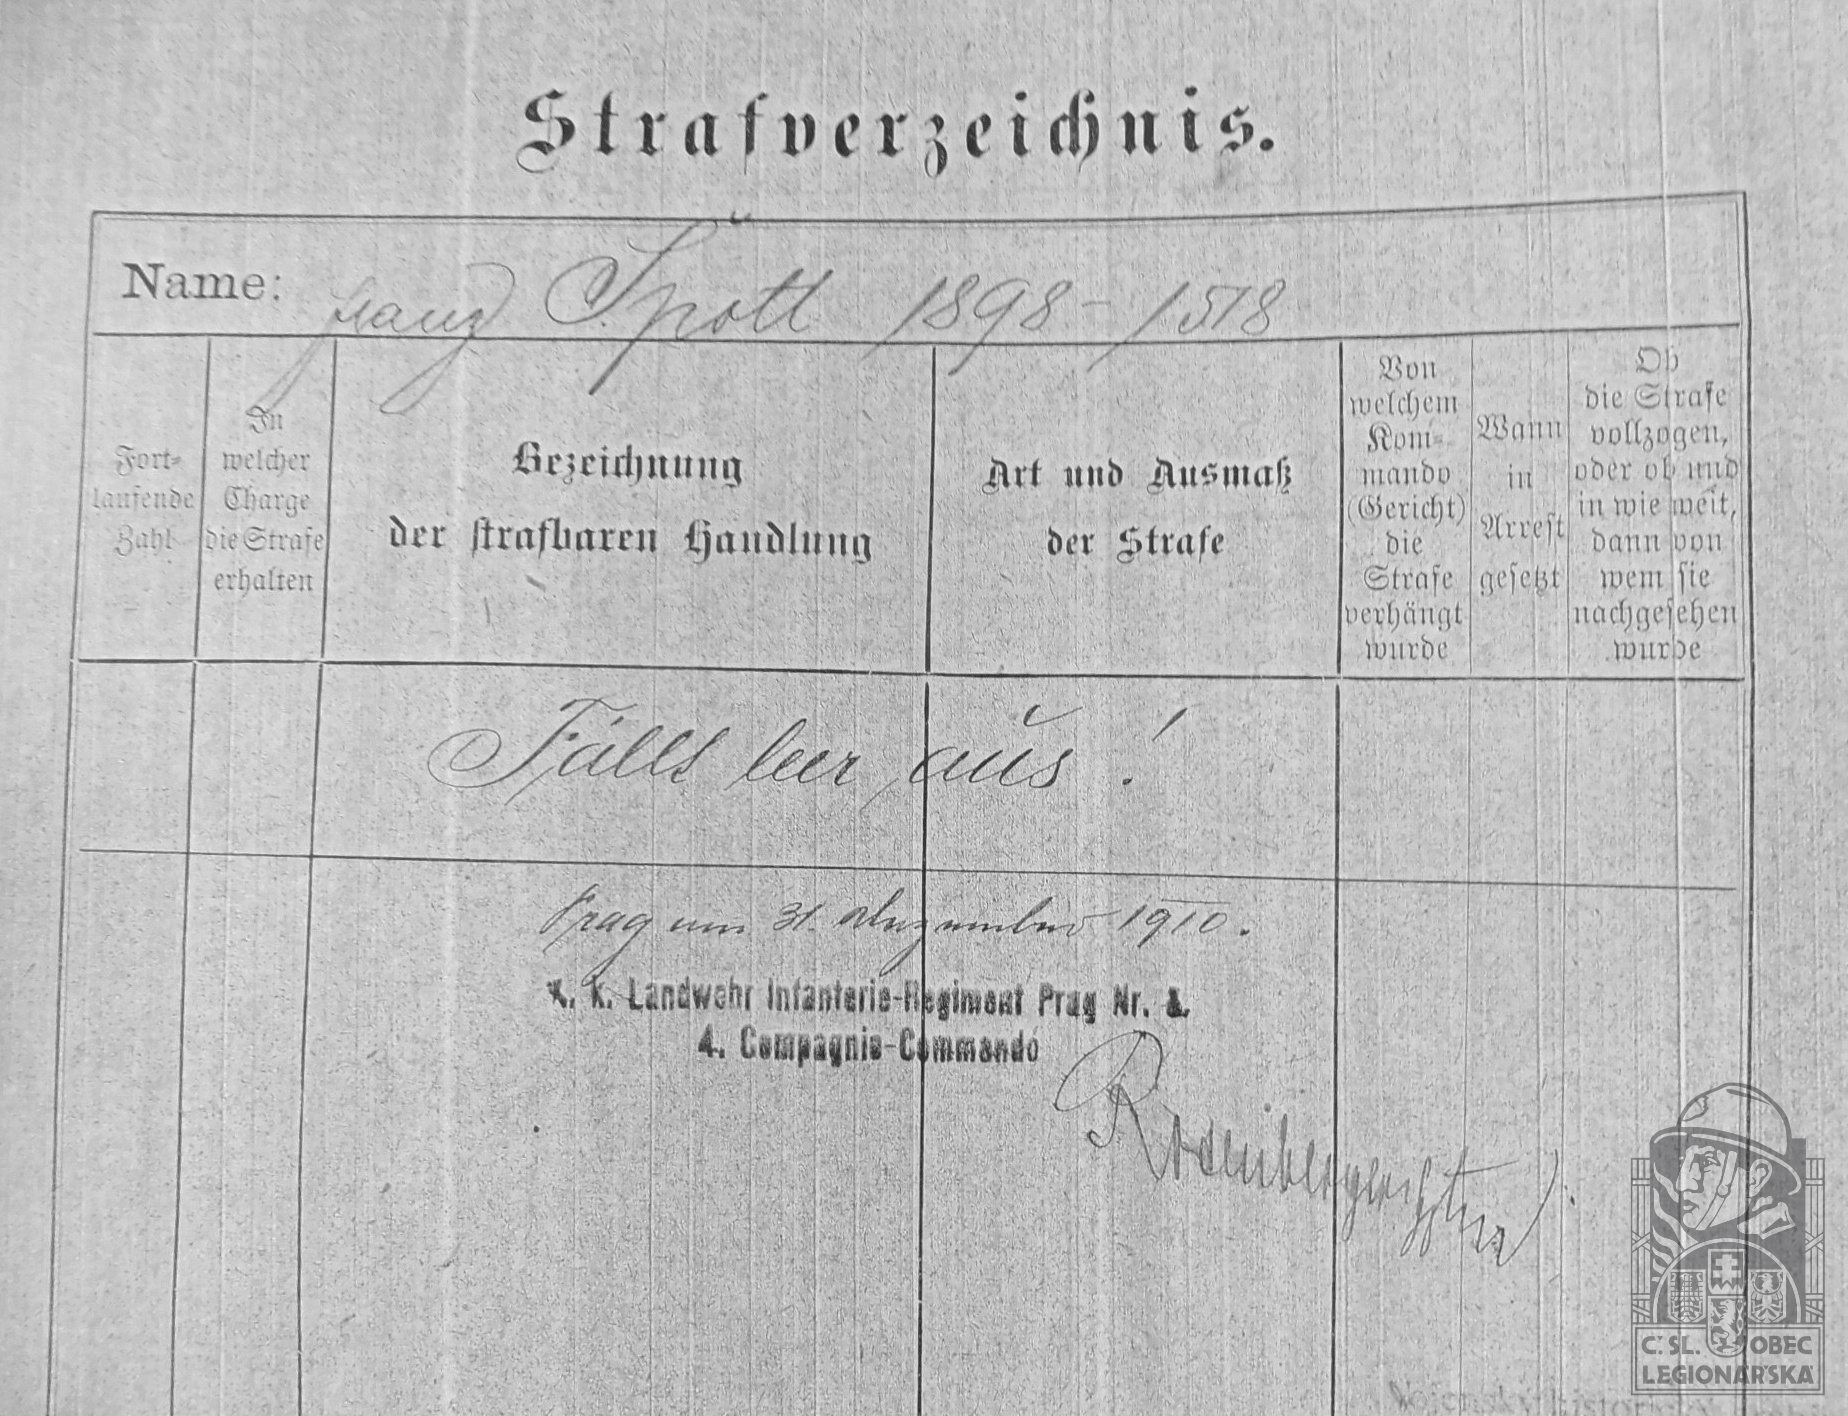 Strafverzeichnis.
Name: Franz Špott 1898 - 1518
Fort-
laufende
Zahl
In
welcher
Charge
die Strafe
erhalten
Bezeichnung
der strafbaren Handlung
Art und Ausmaß
der Strafe
Von
welchem
Kom-
mando
(Gericht)
die
Strafe
verhängt
wurde
Wann
in
Arrest
gesetzt
Ob
die Strafe
vollzogen,
oder ob und
in wie weit,
dann von
wem sie
nachgesehen
wurde
Fällt leer aus!
Prag am 31. Dezember 1910.
K. K. Landwehr Infanterie-Regiment Prag Nr.
4. Compagnie-Commando
Č. SL. OBEC
LEGIONÁŘSKÁ